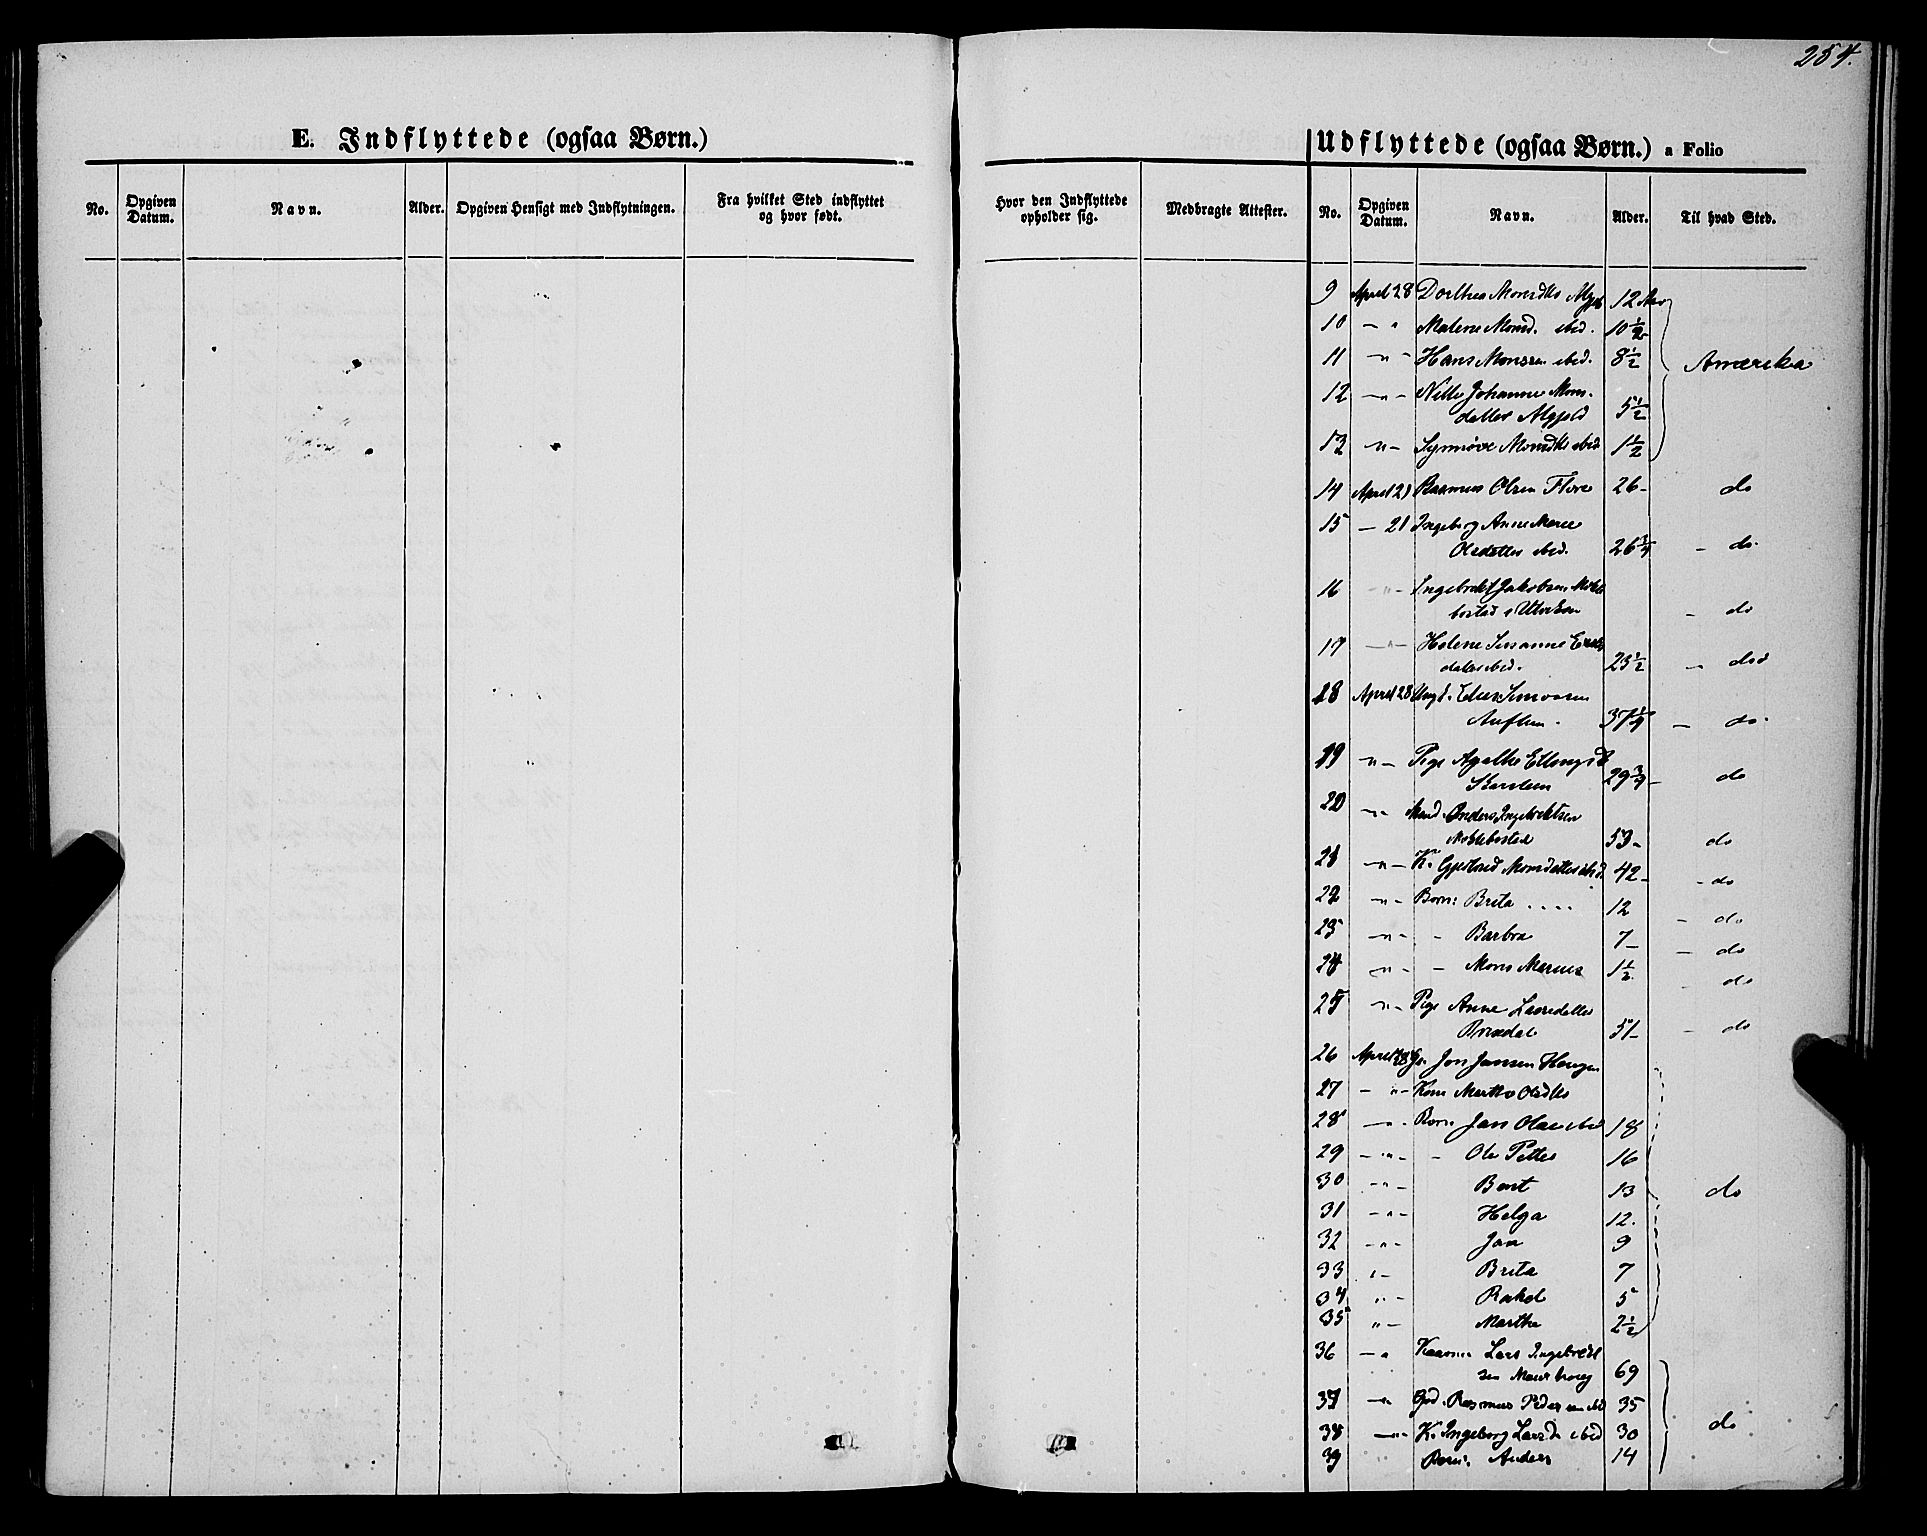 254.
E. Indflyttede (ogsaa Børn.)
Udflyttede (ogsaa Børn.) a Folio
No. Opgiven Datum. Navn. Alder. Opgiven Hensigt med Indflytningen. Fra hvilket Sted indflyttet og hvor født.
Hvor den Indflyttede opholder sig. Medbragte Attester. No. Opgiven Datum. Navn. Alder. Til hvad Sted.
9 April 28 Dorthea Monsdtr 12 Aar
10 — " Malene Monsd. ibid. 10 1/2
11 — " — Hans Monssen ibid. 8 1/2 Amerika
12 — " — Nille Johanne Mons-
datter 5 1/2
13 " — Synnøve Monsdtr ibid 1 1/2
14 April 21 Rasmus Olsen 26 - do
15 — 21 Ingeborg Anne Marie
Olsdatter ibid. 26 3/4 - do.
16 " — Ingebrekt Jakobsen
- do
17 — " — Helene Susanne
ibid. 23 1/2 -
18 April 28 Ungk. Simonsen
37 1/4 — do.
19 " — Pige Agathe
29 3/4 — do
20 — " — Anders Ingebrektsen
Myklebostad 53 - do
21 — " — K. Gjertrud Monsdatter ibid. 42 - - do
22 — " — Børn: Brita . . . . 12 - do
23 — " — - Barbra 7 — — do
24 — " — — Mons Marius 1 1/2. - do
25 — " — Pige Anne Larsdatter
51 - - do
26 April 28 Jon Jansen Haugen
27 — " — Kone Marthe Olsdtr
28 — " - Børn: Jan Olai ibid 18
29 — " — - Ole Petter 16
30 — " — Berit 13 do
31 — " — Helga 12.
32 — " — Jan 9
33 " — Brita 7
34 " — Rakel 5
35 " — Marthe 2 1/2
36 — " Lars Ingebrekt
sen 69
37 — " Rasmus Pedersen ibd 35
38 — " — K. Ingeborg Larsd. ibid 30 do
39 " Børn: Anders 14